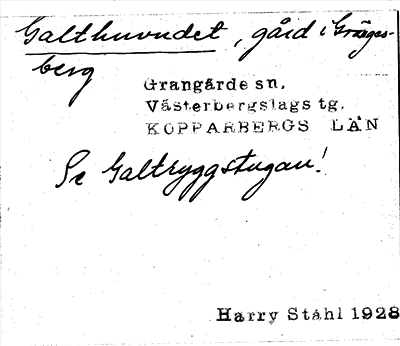 Galthuvudet, gård i Gränges-
berg
Grangärde sn.
Västerbergslags tg.
KOPPARBERGS LÄN
Se Galtryggstugan!
Harry Ståhl 1928